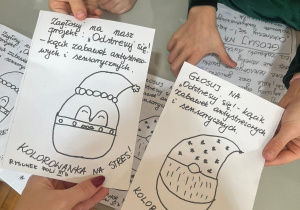 Zagłosuj na nasz
projekt: "Odstresuj się
- kącik zabawek antystreso-
wych i sensorycznych.
KOLOROWANKA NA STRES!
RYSUNEK POLI
GŁOSUJ NA
"Odstresuj się! - kącik
zabawek antystresowych
i sensorycznych
KOLOROW